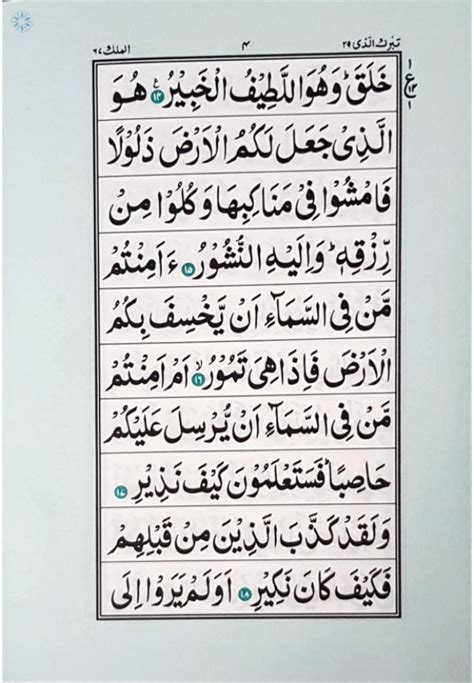 تبرك الذی ۲۹ ۴ الملك ۶۷
خَلَقَ ؕ وَهُوَ اللَّطِيْفُ الْخَبِيْرُ ۱۴ هُوَ
الَّذِیْ جَعَلَ لَكُمُ الْاَرْضَ ذَلُوْلًا
فَامْشُوْا فِیْ مَنَاكِبِهَا وَكُلُوْا مِنْ
رِّزْقِهٖ ؕ وَاِلَيْهِ النُّشُوْرُ ۱۵ ءَاَمِنْتُمْ
مَّنْ فِی السَّمَآءِ اَنْ يَّخْسِفَ بِكُمُ
الْاَرْضَ فَاِذَا هِیَ تَمُوْرُ ۙ ۱۶ اَمْ اَمِنْتُمْ
مَّنْ فِی السَّمَآءِ اَنْ يُّرْسِلَ عَلَيْكُمْ
حَاصِبًا ؕ فَسَتَعْلَمُوْنَ كَيْفَ نَذِيْرِ ۱۷
وَلَقَدْ كَذَّبَ الَّذِيْنَ مِنْ قَبْلِهِمْ
فَكَيْفَ كَانَ نَكِيْرِ ۱۸ اَوَلَمْ يَرَوْا اِلَی